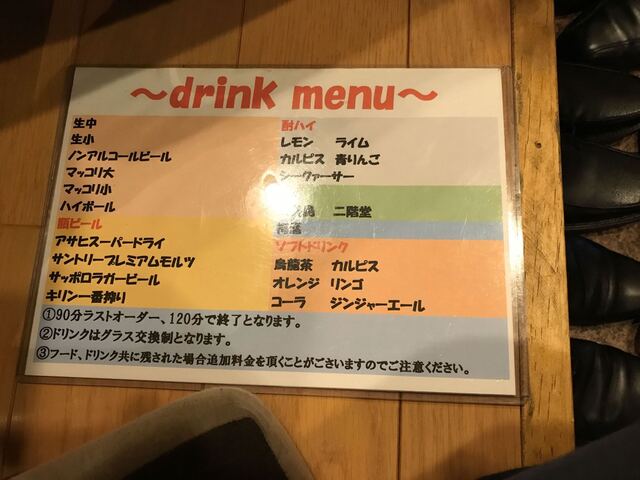 ～drink menu～
生中
生小
ノンアルコールビール
マッコリ大
マッコリ小
ハイボール
瓶ビール
アサヒスーパードライ
サントリープレミアムモルツ
サッポロラガービール
キリン一番搾り
酎ハイ
レモン ライム
カルピス 青りんご
シークァーサー
二階堂
ソフトドリンク
烏龍茶 カルピス
オレンジ リンゴ
コーラ ジンジャーエール
①90分ラストオーダー、120分で終了となります。
②ドリンクはグラス交換制となります。
③フード、ドリンク共に残された場合追加料金を頂くことがございますのでご注意ください。